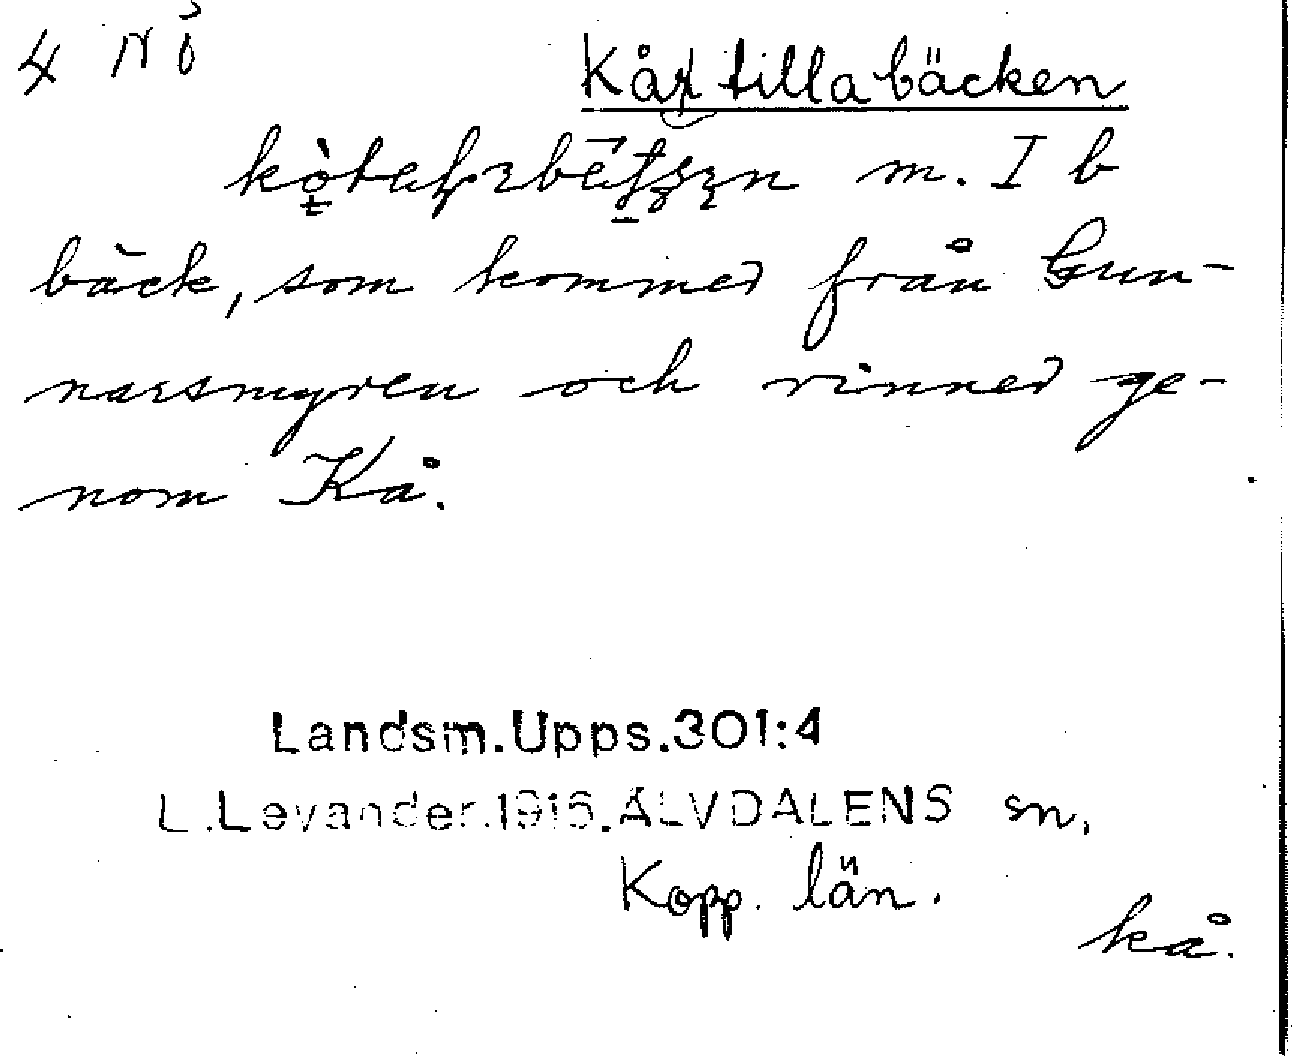 4 NÖ
Kårtillabäcken
m. I b
bäck, som kommer från Gun-
narsmyren och rinner ge-
nom Kå.
Landsm.Upps.301:4
L.Levander.1916.ÄLVDALENS sn,
Kopp. län.
kå.